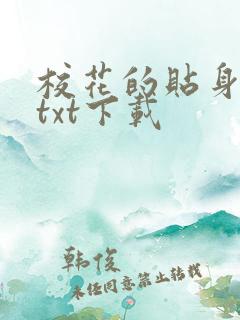 校花的贴身
txt下载
韩俊
未经同意禁止转载